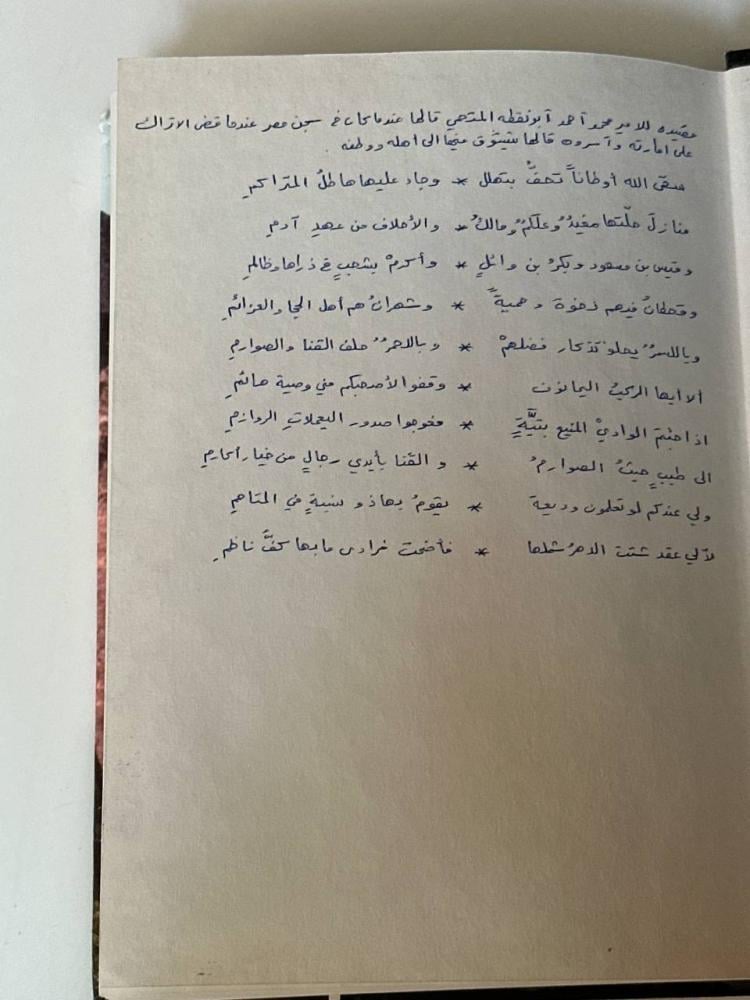 قصيده للامير محمد أحمد أبو نقطه المتحمي قالها عندما كان في سجن مصر عندما قض الاتراك
على امارته وأسروه قالها يتشوق فيها الى أهله ووطنه
سقى الله أوطاناً تحفُّ بتهلل * وجاد عليها هاطلُ المتراكمِ
منازلَ حلّتها مغيدُ وعلكمُ ومالكُ * والأحلاف من عهدِ آدمِ
وقيس بن مسعود وبكرُ بن وائلٍ * وأكرمْ بشعبٍ في ذراها وظالمِ
وقحطانُ فيهم نخوة وحميةً * وشهرانُ هم أهل الحجا والعزائمِ
وياللسرُ يحلو تذكار فضلهمْ * وبالاحمرُ حلف القنا والصوارمِ
ألا أيها الركبُ اليمانون * وقفوا لأصحبكم مني وصية هائمِ
اذا جئتم الواديْ المنيع بتيَّةٍ * فعوجوا صدور اليعملاتِ الروازمِ
الى طيبٍ حيثُ الصوارمُ * و القنا بأيدي رجالٍ من خيار أكارمِ
ولي عندكم لو تعلمون وديعة * يقومُ بها ذو نسبةٍ في المتاحمِ
لآلي عقد شتت الدهرُ شملها * فأضحت فرادى ما بها كفُّ ناظمِ